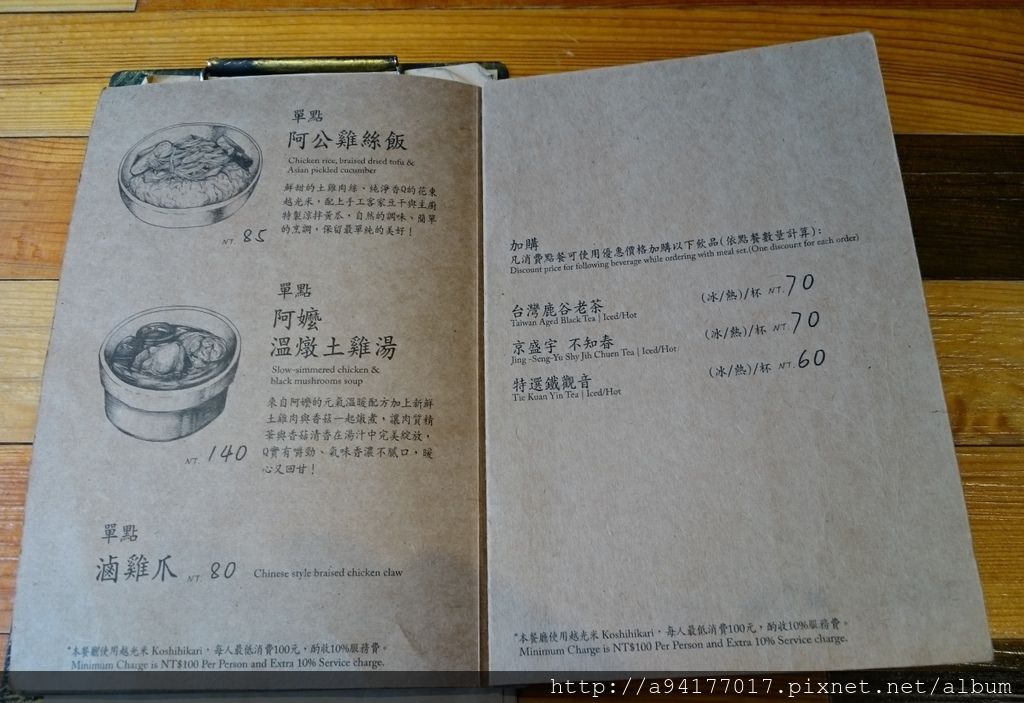 單點
阿公雞絲飯
Chicken rice, braised dried tofu &
Asian pickled cucumber
鮮甜的土雞肉絲、純淨香Q的花東
越光米，配上手工客家豆干與主廚
特製涼拌黃瓜，自然的調味、簡單
的烹調，保留最單純的美好！
NT. 85
單點
阿嬤
溫燉土雞湯
Slow-simmered chicken &
black mushrooms soup
來自阿嬤的元氣溫暖配方加上新鮮
土雞肉與香菇一起燉煮，讓肉質精
華與香菇清香在湯汁中完美綻放，
Q實有嚼勁、氣味香濃不膩口，暖
心又回甘！
NT. 140
單點
滷雞爪 NT. 80 Chinese style braised chicken claw
*本餐廳使用越光米 Koshihikari，每人最低消費100元，酌收10%服務費。
Minimum Charge is NT$100 Per Person and Extra 10% Service charge.
加購
凡消費點餐可使用優惠價格加購以下飲品(依點餐數量計算)：
Discount price for following beverage while ordering with meal set.(One discount for each order)
台灣鹿谷老茶 (冰/熱)/杯 NT. 70
Taiwan Aged Black Tea | Iced/Hot
京盛宇 不知春 (冰/熱)/杯 NT. 70
Jing-Seng-Yu Shy Jih Chuen Tea | Iced/Hot
特選鐵觀音 (冰/熱)/杯 NT. 60
Tie Kuan Yin Tea | Iced/Hot
*本餐廳使用越光米 Koshihikari，每人最低消費100元，酌收10%服務費。
Minimum Charge is NT$100 Per Person and Extra 10% Service charge.
http://a94177017.pixnet.net/album